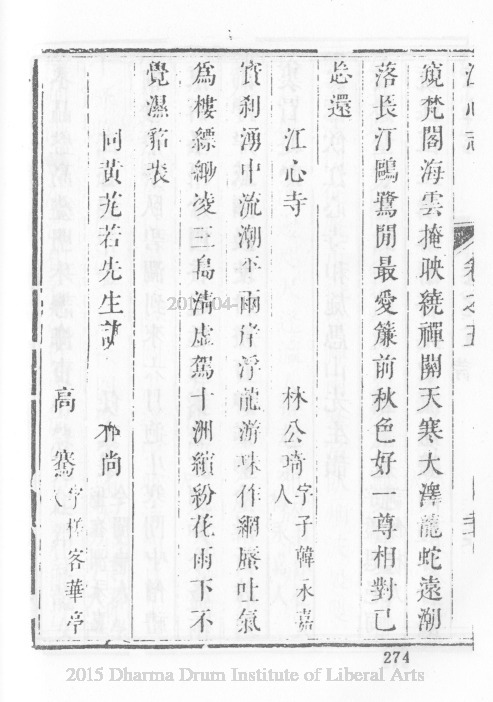 江心志
卷之五
窺梵閣海雲掩映繞禪關天寒大澤龍蛇遠潮
落長汀鷗鷺閒最愛簾前秋色好一尊相對已
忘還
江心寺
林公
字子韓永嘉
人
寳刹湧中流潮平兩岸浮龍游珠作網蜃吐氣
為樓縹緲凌三島清虛駕十洲繽紛花雨下不
覺濕貂裘
同黃
若先生
和尚
高
字
客華亭
2015-04-1
274
2015 Dharma Drum Institute of Liberal Arts